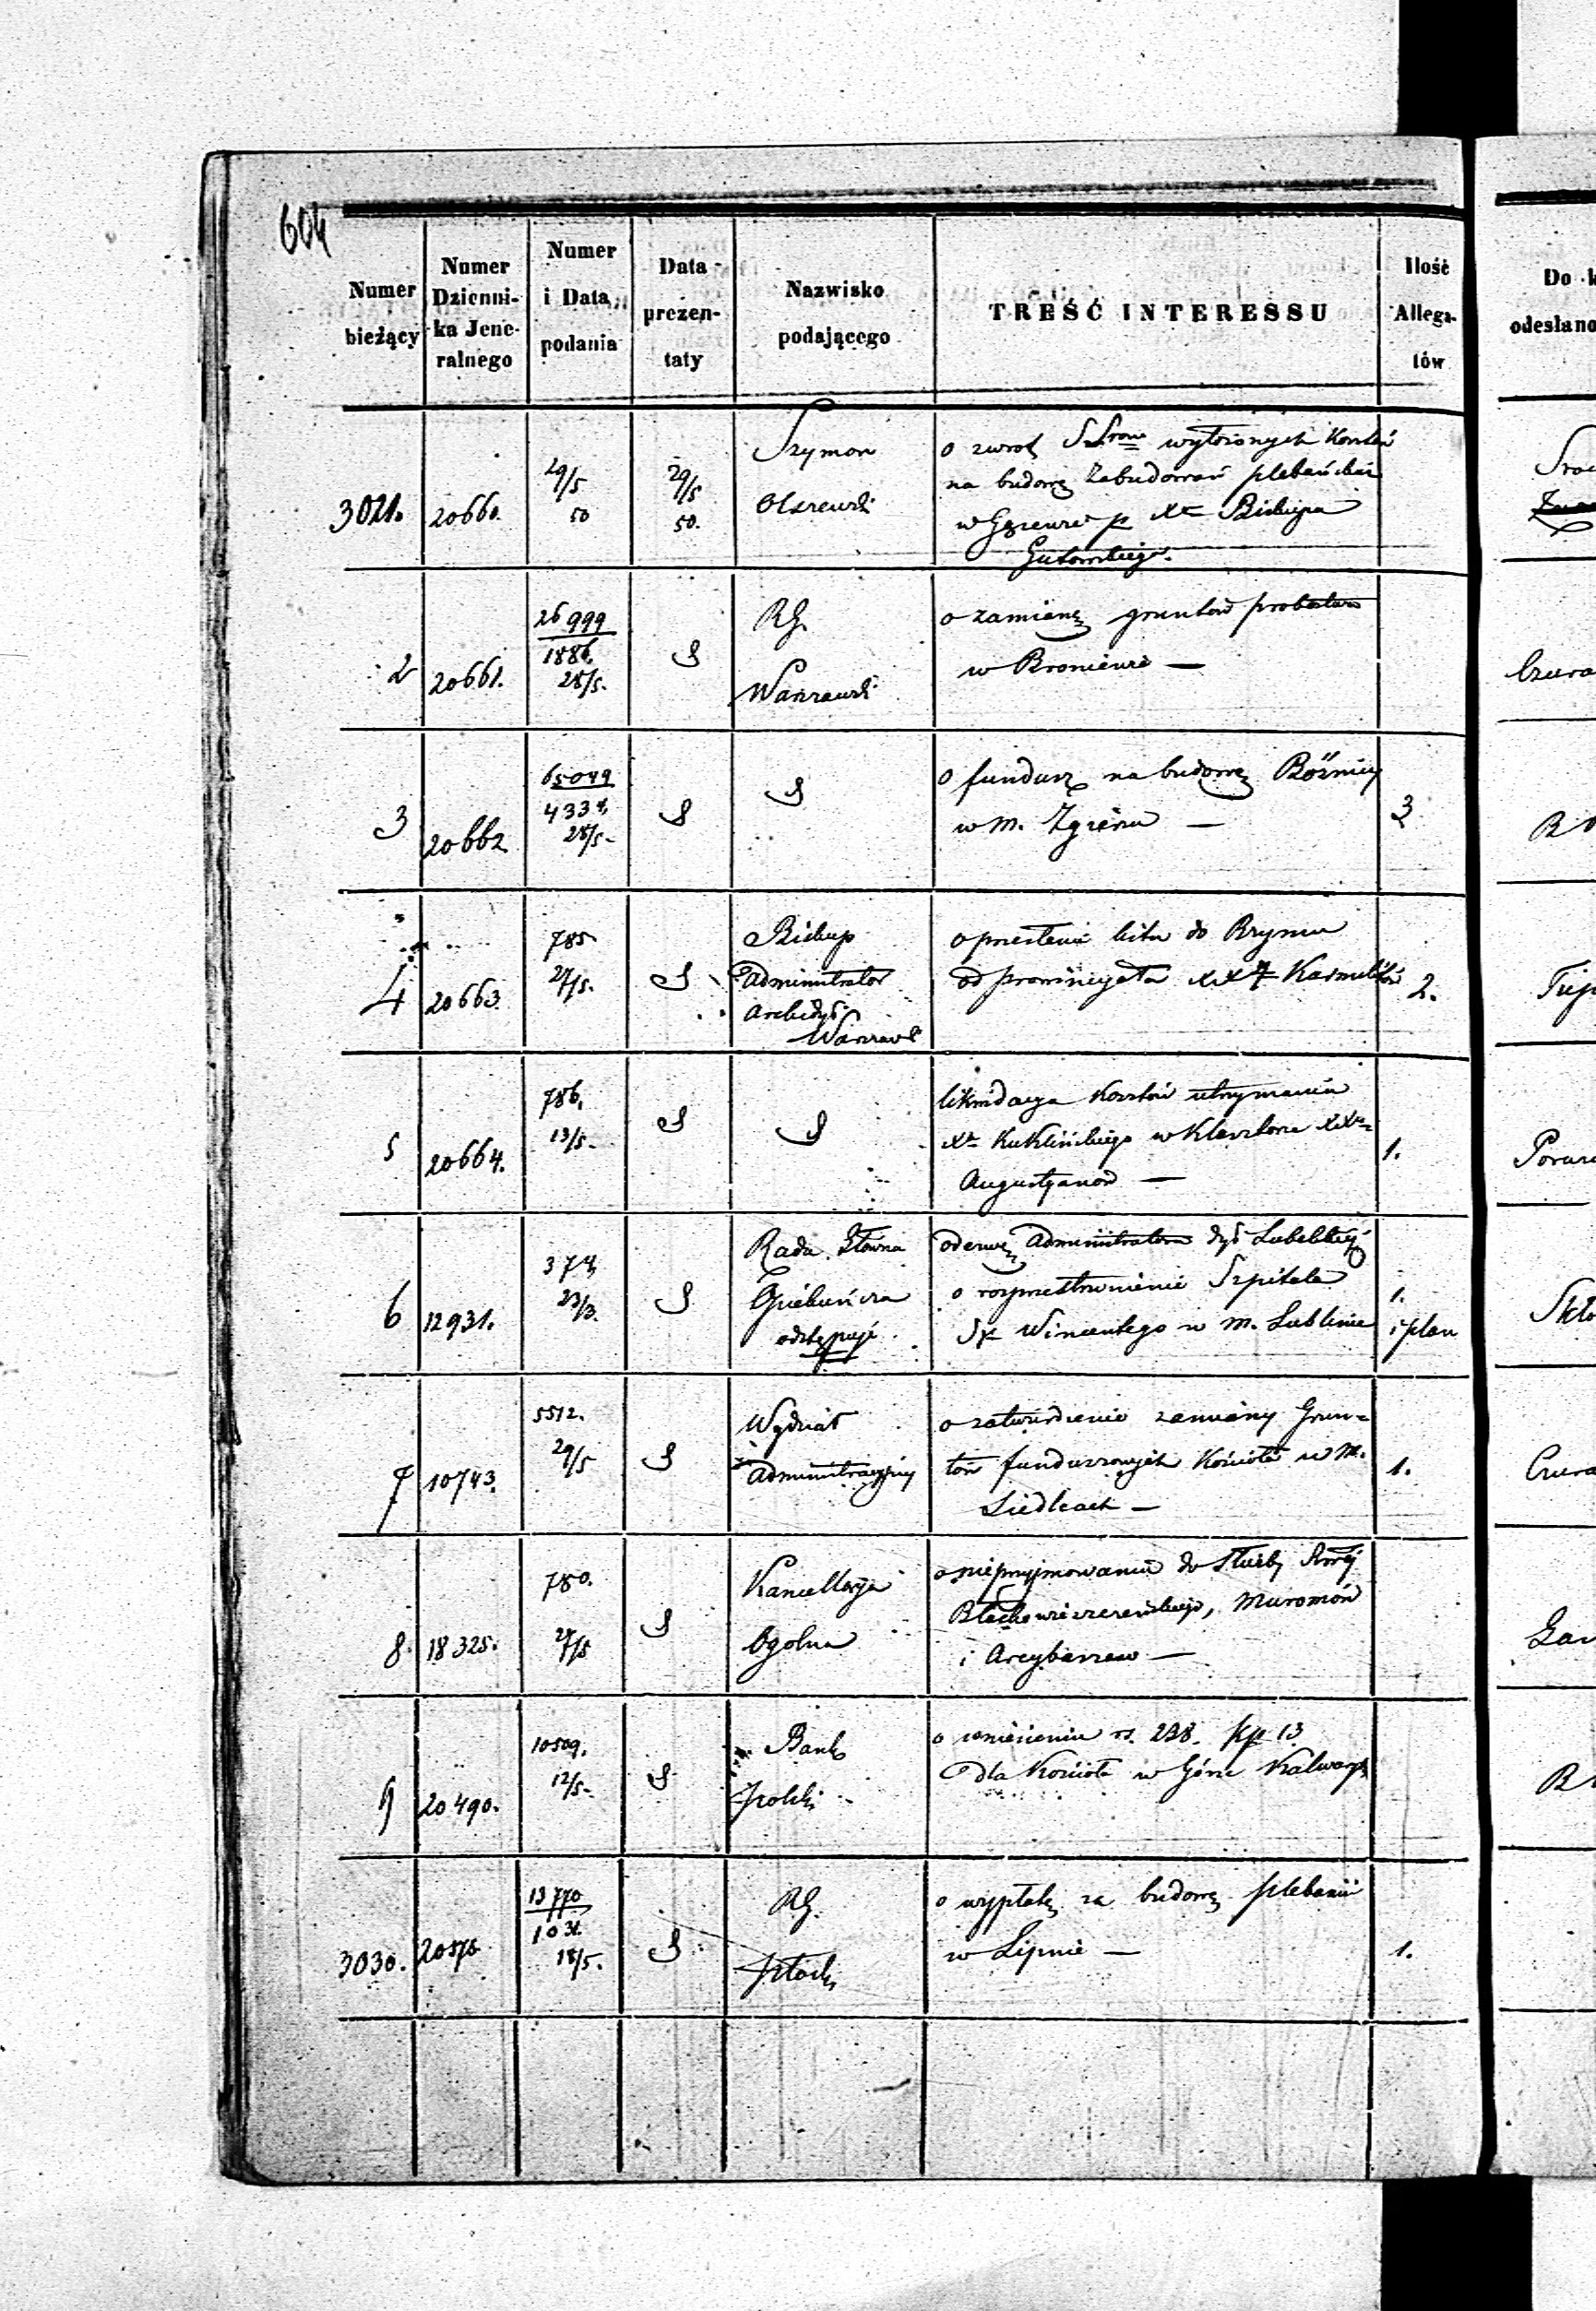 604
Numer bieżący
Numer Dzienni-ka Jene-ralnego
Numer i Data podania
Data prezen-taty
Nazwisko podającego
TREŚĆ INTERESSU
Ilość Allega-tów
Do k
odesłano
3021. 20660. 29/5 50 29/5 50.
Szymon
Olszewski
o zwrot wyłożonych Kosztów
na budowę Zabudowań plebańskich
w p Xa Biskupa
Gutowskiego.
2 20661. 26999 1886. 28/5.
RG.
Warszawski
o zamianę gruntów probostwa
w Broniewie —
3 20662 65049 4331. 28/5-
o fundusz na budowę Bóżnicy
w m. Zgierzu —
3
4 20663. 785 27/5.
Biskup
Administrator
Archidyś.
Warszaws
o przesłanie listu do Rzymu
od prowincyała XX Karmelitów
2.
5 20664. 786. 13/5-
likwidacya kosztów utrzymania
Xa Kuklińskiego w Klasztorze XX
Augustyanów —
1.
6 12931. 374 23/3.
Rada Główna
Opiekuńcza
odstępuje
odezwę Administratora dyś Lubelskiej
o rozprzestrzenienie Szpitala
Sx Wincentego w m. Lublinie
1.
i plan
7 10743. 5512. 29/5
Wydział
Administracyjny
o zatwierdzenie zamiany Grun=
tów funduszowych Kościoła w m.
Siedlcach —
1.
8. 18325. 780. 27/5
Kancellarya
Ogolna
o nieprzyjmowaniu do służby
i Arcybaszew —
9 20490. 10509. 12/5-
Bank
Polski
o rs. 238. kp 13
dla Kościoła w Górze Kalwaryi
3030. 13770 1031. 18/5.
RG.
Płocki
o wypłatę za budowę plebanii
w Lipnie —
1.